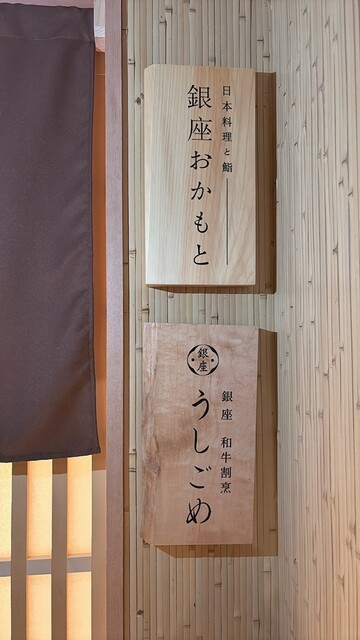 日本料理と鮨
銀座おかもと
銀座 和牛割烹
銀座
うしごめ